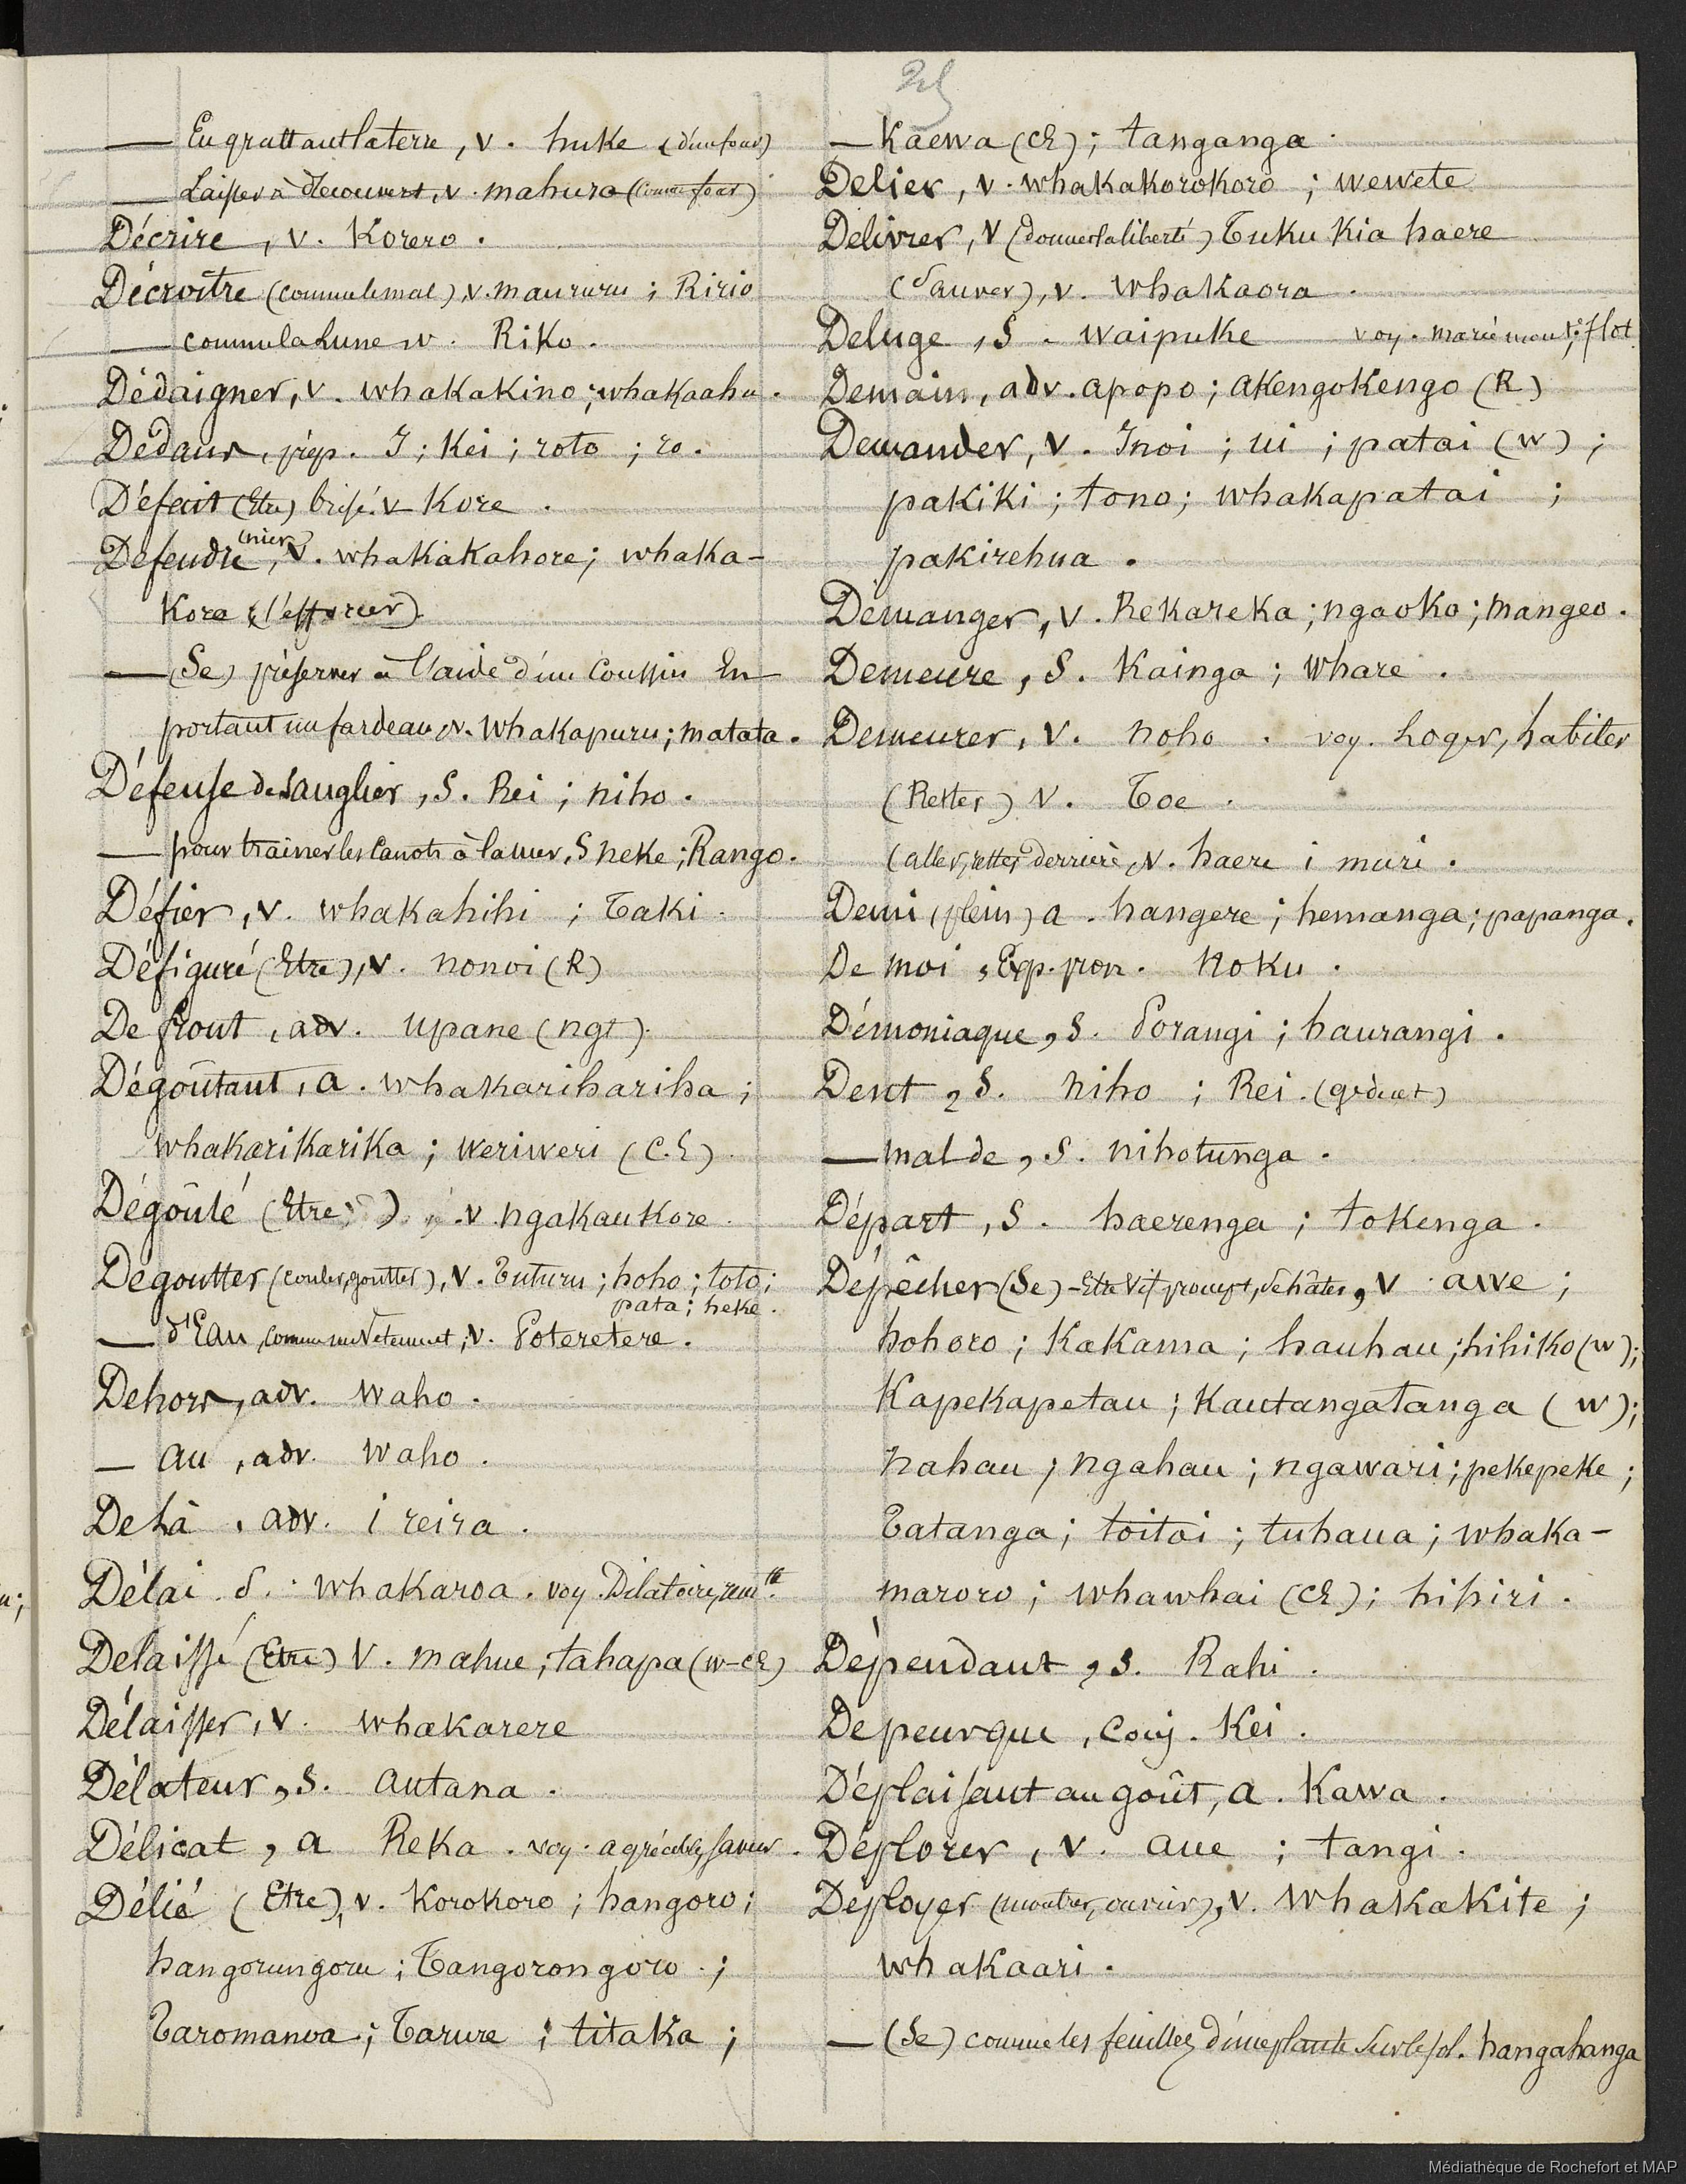 — En grattant la terre, v. huke (d'un four)
— Laisser à découvert, v. mahura (comme four)
Décrire, v. Korero.
Décroître (comme le mal) v. maururu ; Ririo
— comme la Lune v. Riko.
Dédaigner, v. whakakino ; whakaahu.
Dedans, prép. I ; Kei ; roto ; ro.
Défait (Etre) brisé. v Kore.
Defendre (nier), v. whakakahore ; whaka-
Kore (s'efforcer)
— (Se) préserver à l'aide d'un Coussin En
portant un fardeau, v. Whakapuru ; matata.
Défense de Sanglier, S. Rei ; niho.
— pour trainer les Canots à la mer, S neke ; Rango.
Défier, v. whakahihi ; Taki.
Défiguré (Etre), v. nonoi (R)
De front, adv. upane (ngt).
Dégoûtant, a. whakarihariha ;
whakarikarika ; weriweri (C.E).
Dégoûté (Etre), v. ngakaukore.
Degoutter (couler, goutter), v. Tuturu ; hoho ; toto ;
pata ; heke.
— d'Eau, comme un Vetement, v. Poteretere.
Dehors, adv. waho.
— au, adv. Waho.
De Là, adv. i reira.
Délai. S. whakaroa. voy. Dilatoire, rem.
Delaissé (Etre) V. mahue ; tahapa (w-CE)
Délaisser, v. whakarere
Délateur, S. autana.
Délicat, a Reka. voy. agréable, saveur.
Délié (Etre), v. Korokoro ; hangoro ;
hangorungoru ; Tangorongoro ;
Taromanoa ; Tarure ; titaka ;
— Kaewa (CE) ; tanganga.
Delier, v. whakakorokoro ; wewete
Delivrer, v (donner la liberté) Tuku Kia haere
(Sauver), v. whakaora.
Deluge, S. waipuke voy. marée mont.te ; flot
Demain, adv. apopo ; akengokengo (R)
Demander, v. Inoi ; ui ; patai (w) ;
pakiki ; tono ; whakapatai ;
pakirehua.
Demanger, v. Rekareka ; ngaoko ; mangeo.
Demeure, S. Kainga ; Whare.
Demeurer, v. noho. voy. Loger, habiter
(Rester) v. Toe.
(aller, rester derrière, v. haere i muri.
Demi (plein) a. hangere ; hemanga ; papanga.
De moi, Exp. pron. Noku.
Démoniaque, S. Porangi ; haurangi.
Dent, S. niho ; Rei. (gde dent)
— mal de, S. nihotunga.
Départ, S. haerenga ; tokenga.
Dépêcher (Se) - Etre Vif, prompt, se hâter, v. awe ;
hohoro ; Kakama ; hauhau ; hihiko (w) ;
Kapekapetau ; Kautangatanga (w) ;
nahau ; ngahau ; ngawari ; pekepeke ;
Tatanga ; toitoi ; tuhaua ; whaka-
maroro ; whawhai (CE) ; hihiri.
Dépendant, S. Rahi.
De peur que, conj. Kei.
Déplaisant au goût, a. Kawa.
Déplorer, v. aue ; tangi.
Deployer (montrer, ouvrir), v. Whakakite ;
whakaari.
— (Se) comme les feuilles d'une plante sur le sol. hangahanga
Médiathèque de Rochefort et MAP